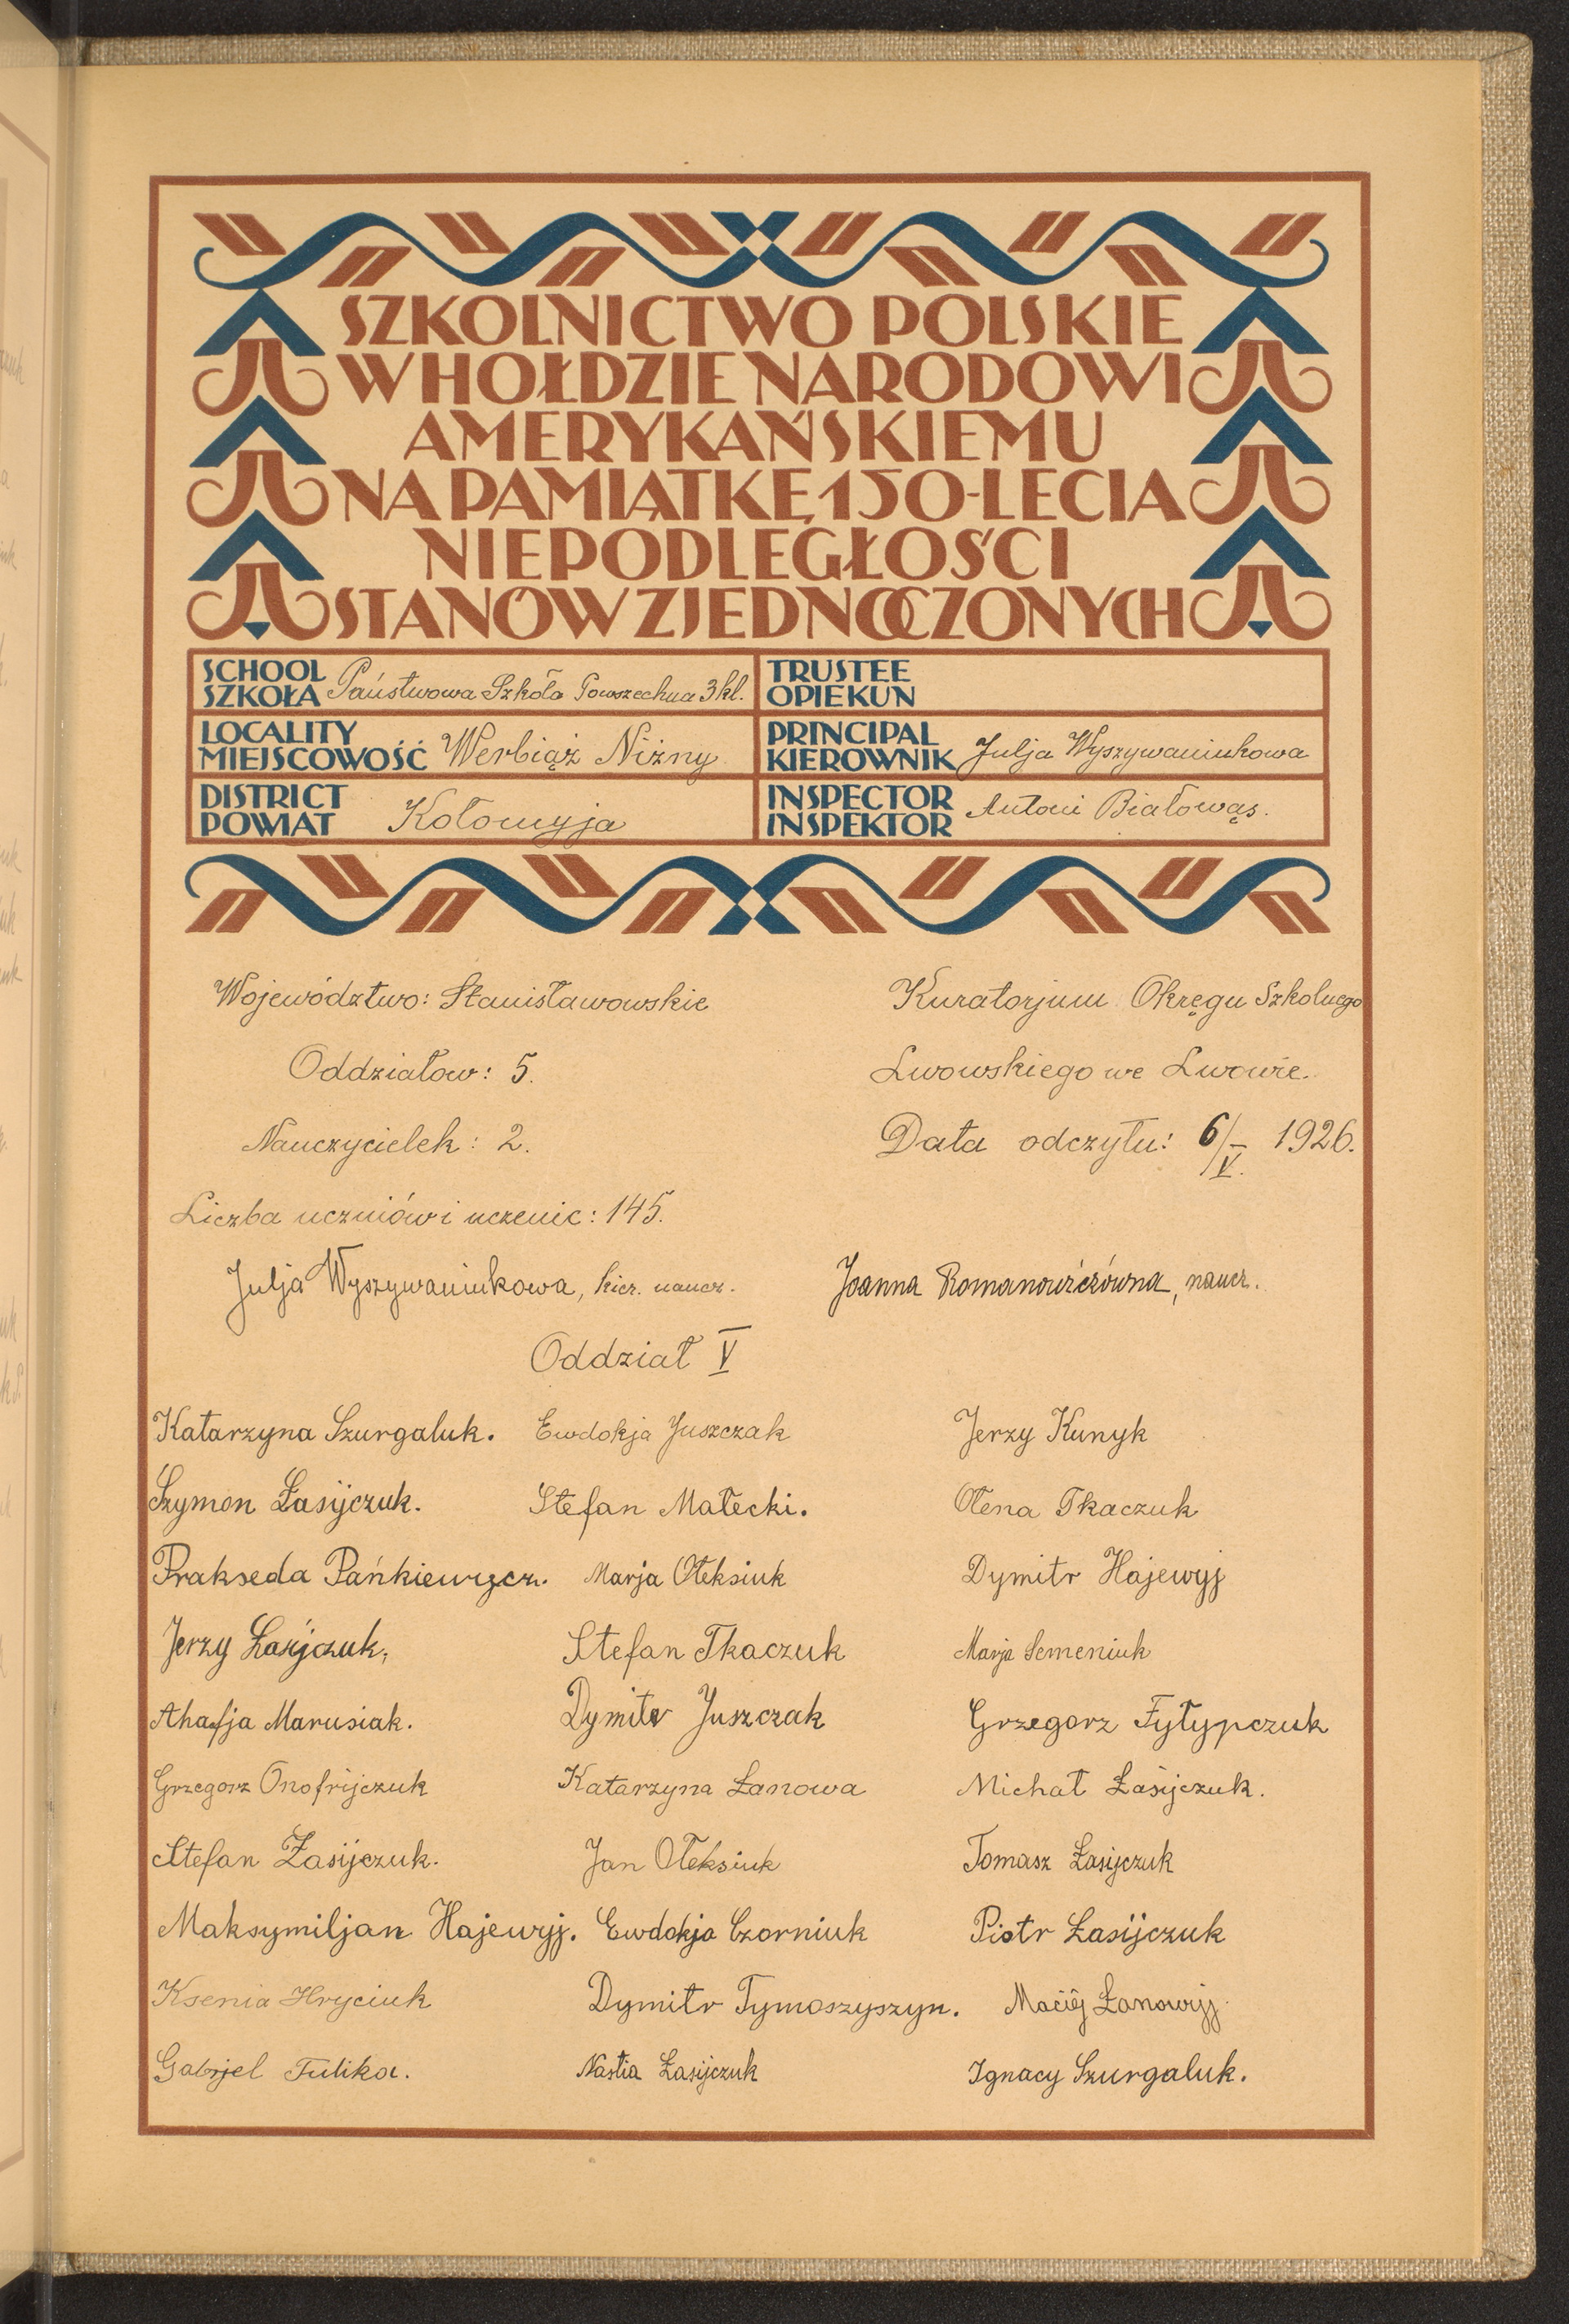 SZKOLNICTWO POLSKIE
W HOŁDZIE NARODOWI
AMERYKAŃSKIEMU
NA PAMIĄTKĘ 150-LECIA
NIEPODLEGŁOŚCI
STANÓW ZJEDNOCZONYCH
SCHOOL
SZKOŁA Państwowa Szkoła Powszechna 3 kl.
TRUSTEE
OPIEKUN
LOCALITY
MIEJSCOWOŚĆ Werbiąż Niżny
PRINCIPAL
KIEROWNIK Julja Wyszywaniukowa
DISTRICT
POWIAT Kołomyja
INSPECTOR
INSPEKTOR Antoni Białowąs.
Województwo: Stanisławowskie Kuratorjum Okręgu Szkolnego
Oddziałow: 5. Lwowskiego we Lwowie.
Nauczycielek: 2. Data odczytu: 6/V. 1926.
Liczba uczniów i uczenic: 145.
Julja Wyszywaniukowa, kier. naucz. Joanna Romanowiczówna, naucz.
Oddział V
Katarzyna Szurgaluk. Ewdokja Juszczak Jerzy Kunyk
Szymon Łasijczuk. Stefan Małecki. Ołena Tkaczuk
Prakseda Pańkiewycz. Marja Ołeksiuk Dymitr Hajewyj
Jerzy Łasijczuk, Stefan Tkaczuk Marja Semeniuk
Ahafja Marusiak. Dymitr Juszczak Grzegorz Fyłypczuk
Grzegorz Onofrijczuk Katarzyna Łanowa Michał Łasijczuk.
Stefan Łasijczuk. Jan Ołeksiuk Tomasz Łasijczuk
Maksymiljan Hajewyj. Ewdokja Czorniuk Piotr Łasijczuk
Ksenia Hryciuk Dymitr Tymoszyszyn. Maciej Łanowyj
Gabrjel Tulika. Nastia Łasijczuk Ignacy Szurgaluk.